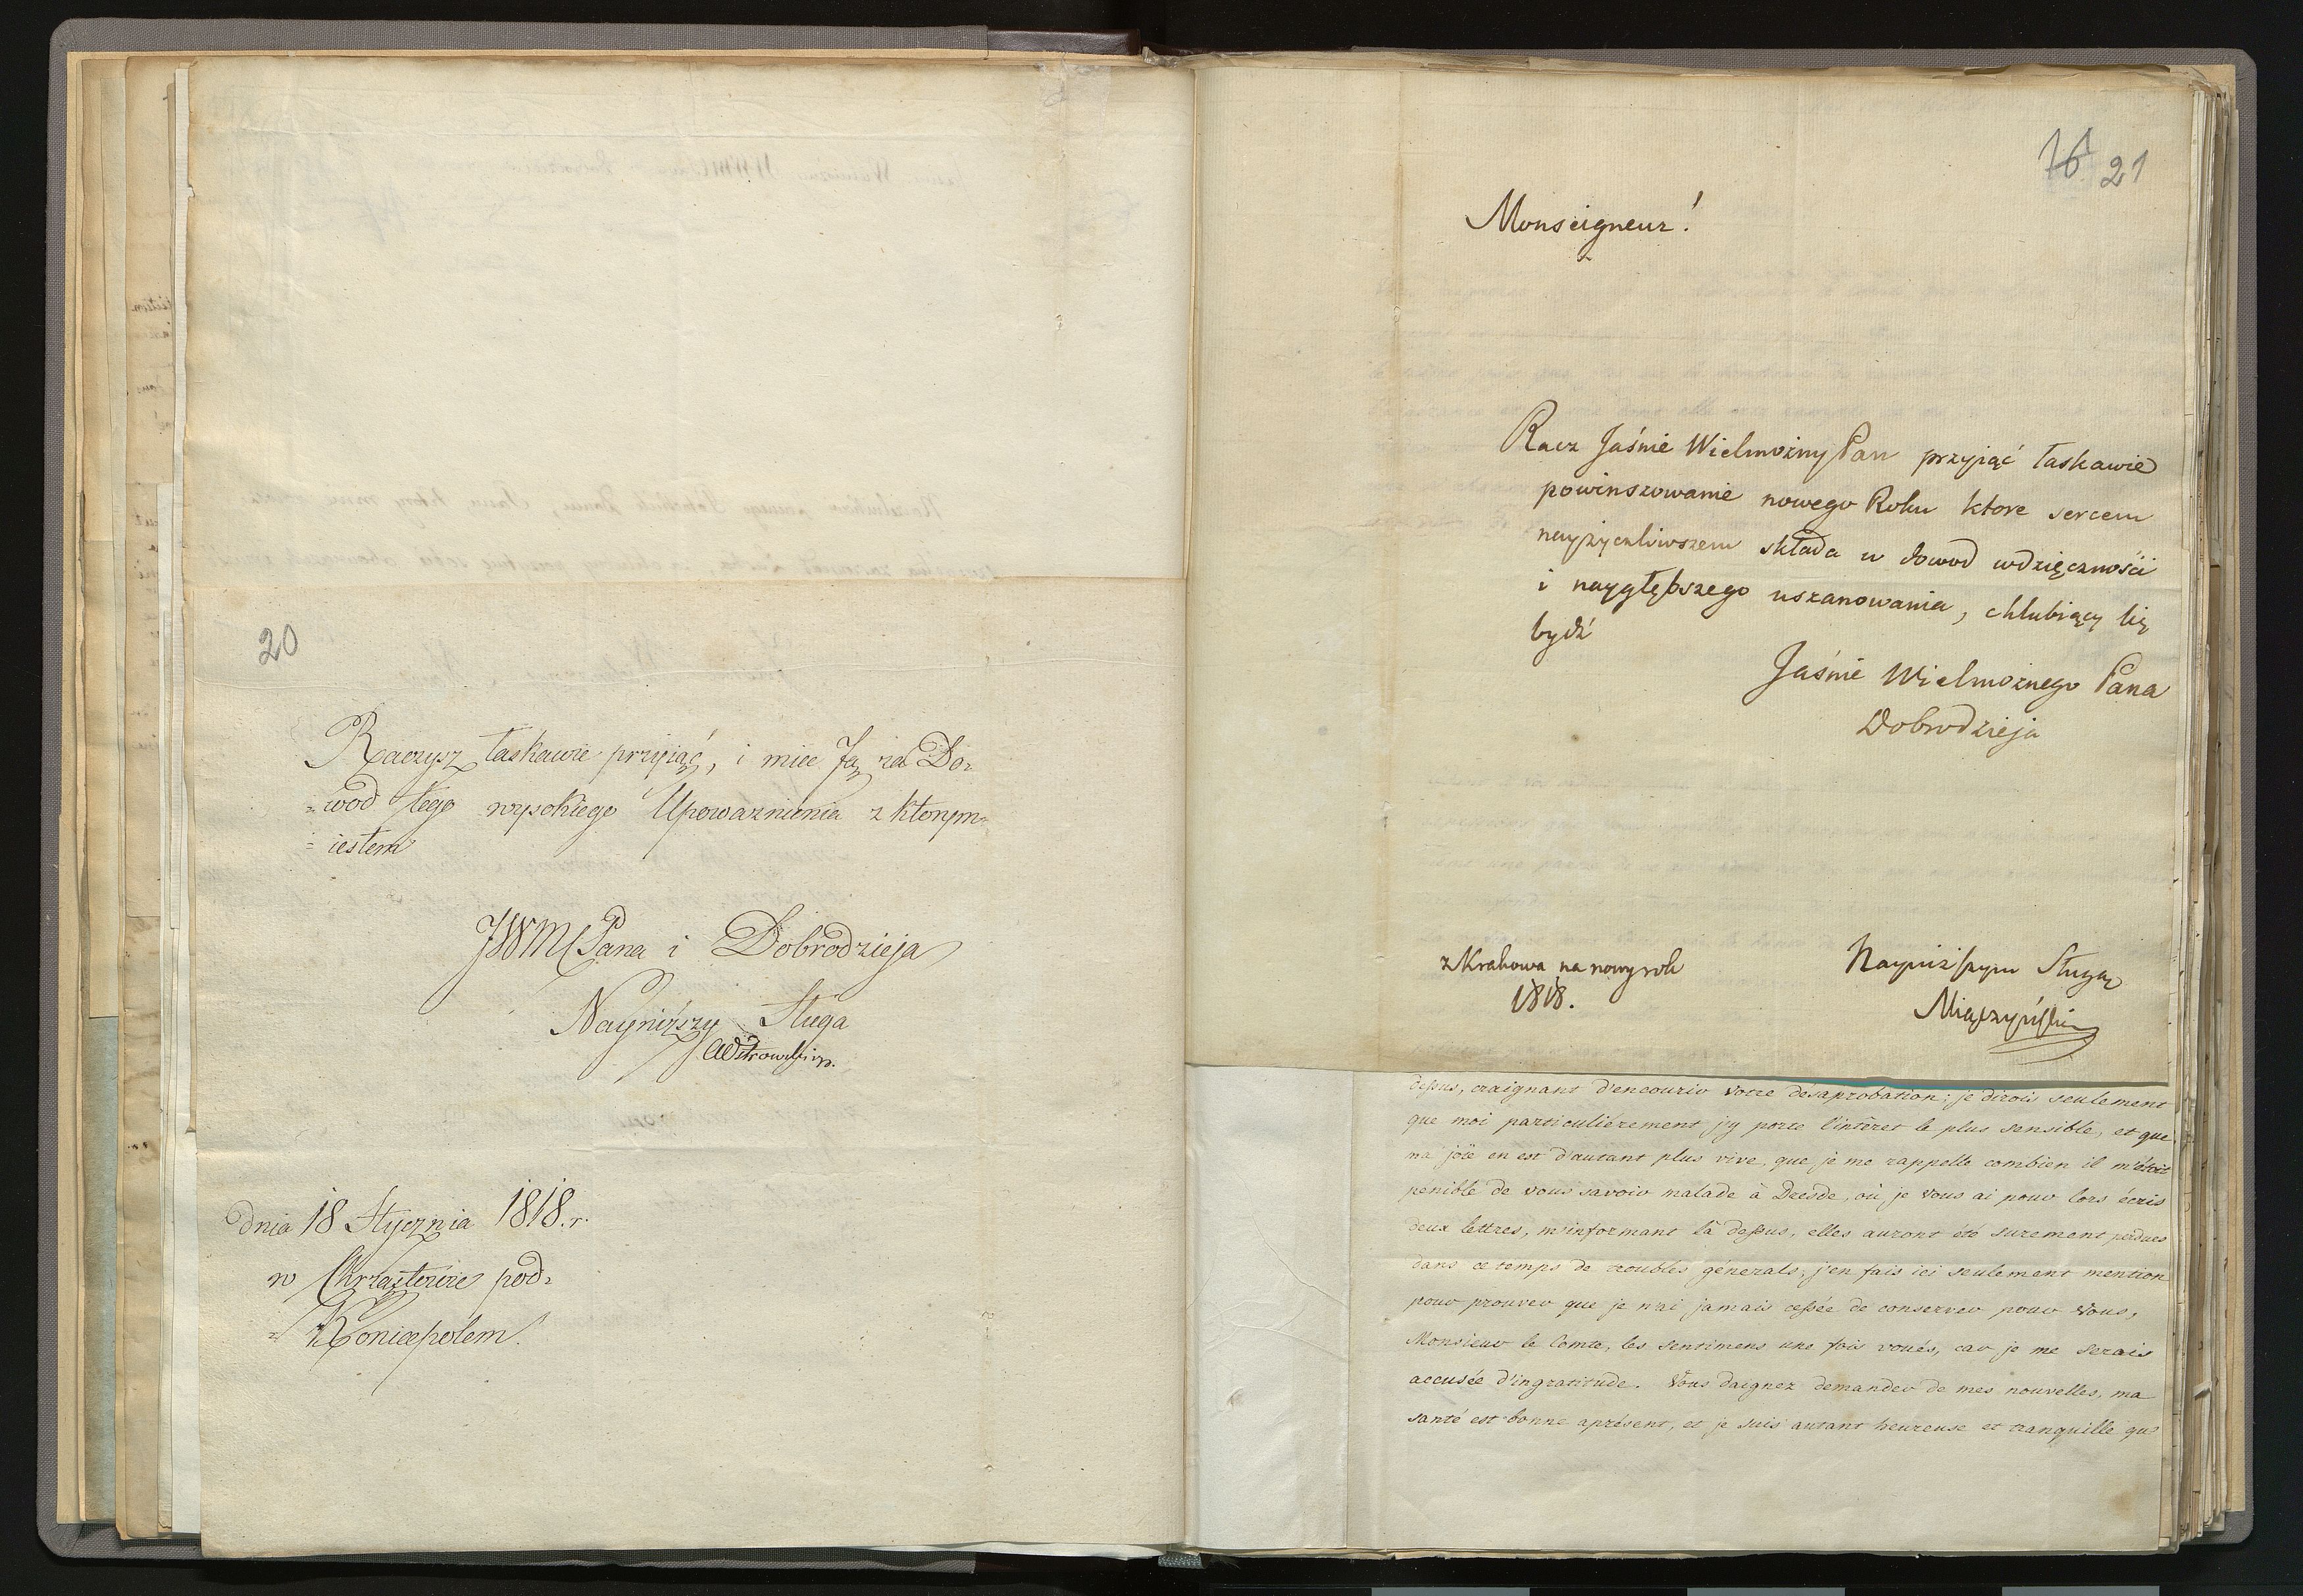 20
Raczysz łaskawie przyiąć, i mieć Ją za Do=
=wod tego wysokiego Upoważnienia z ktorym=
=iestem
JWM Pana i Dobrodzieja
Nayniższy Sługa
dnia 18 Stycznia 1818.r.
w Chrząstowie pod=
= Koniecpolem.
16 21
Monseigneur!
Racz Jaśnie Wielmożny Pan przyiąć łaskawie
powinszowanie nowego Roku ktore sercem
nayżyczliwszem składa w dowod wdzięczności
i naygłębszego uszanowania, chlubiący się
bydź
Jaśnie Wielmożnego Pana
Dobrodzieja
z Krakowa na nowy rok
1818.
Nayniższym Sługą
Miączyński
depus, craignant d'encourir votre désaprobation; je dirois seulement
que moi particuliérement j'y porte l'intêret le plus sensible, et que
ma joïe en est d'autant plus vive, que je me rappelle combien il m'étoit
penible de vous savoir malade à Dresde, où je vous ai pour lors écris
deux lettres, m'informant là dessus, elles auront été surement perdues
dans ce temps de troubles génerals, j'en fais ici seulement mention
pour prouver que je n'ai jamais cessée de conserver pour Vous,
Monsieur le Comte, les sentimens une fois voués, car je me serais
accusée d'ingratitude. Vous daignez demander de mes nouvelles, ma
santé est bonne aprésent, et je suis autant heureuse et tranquille qu'